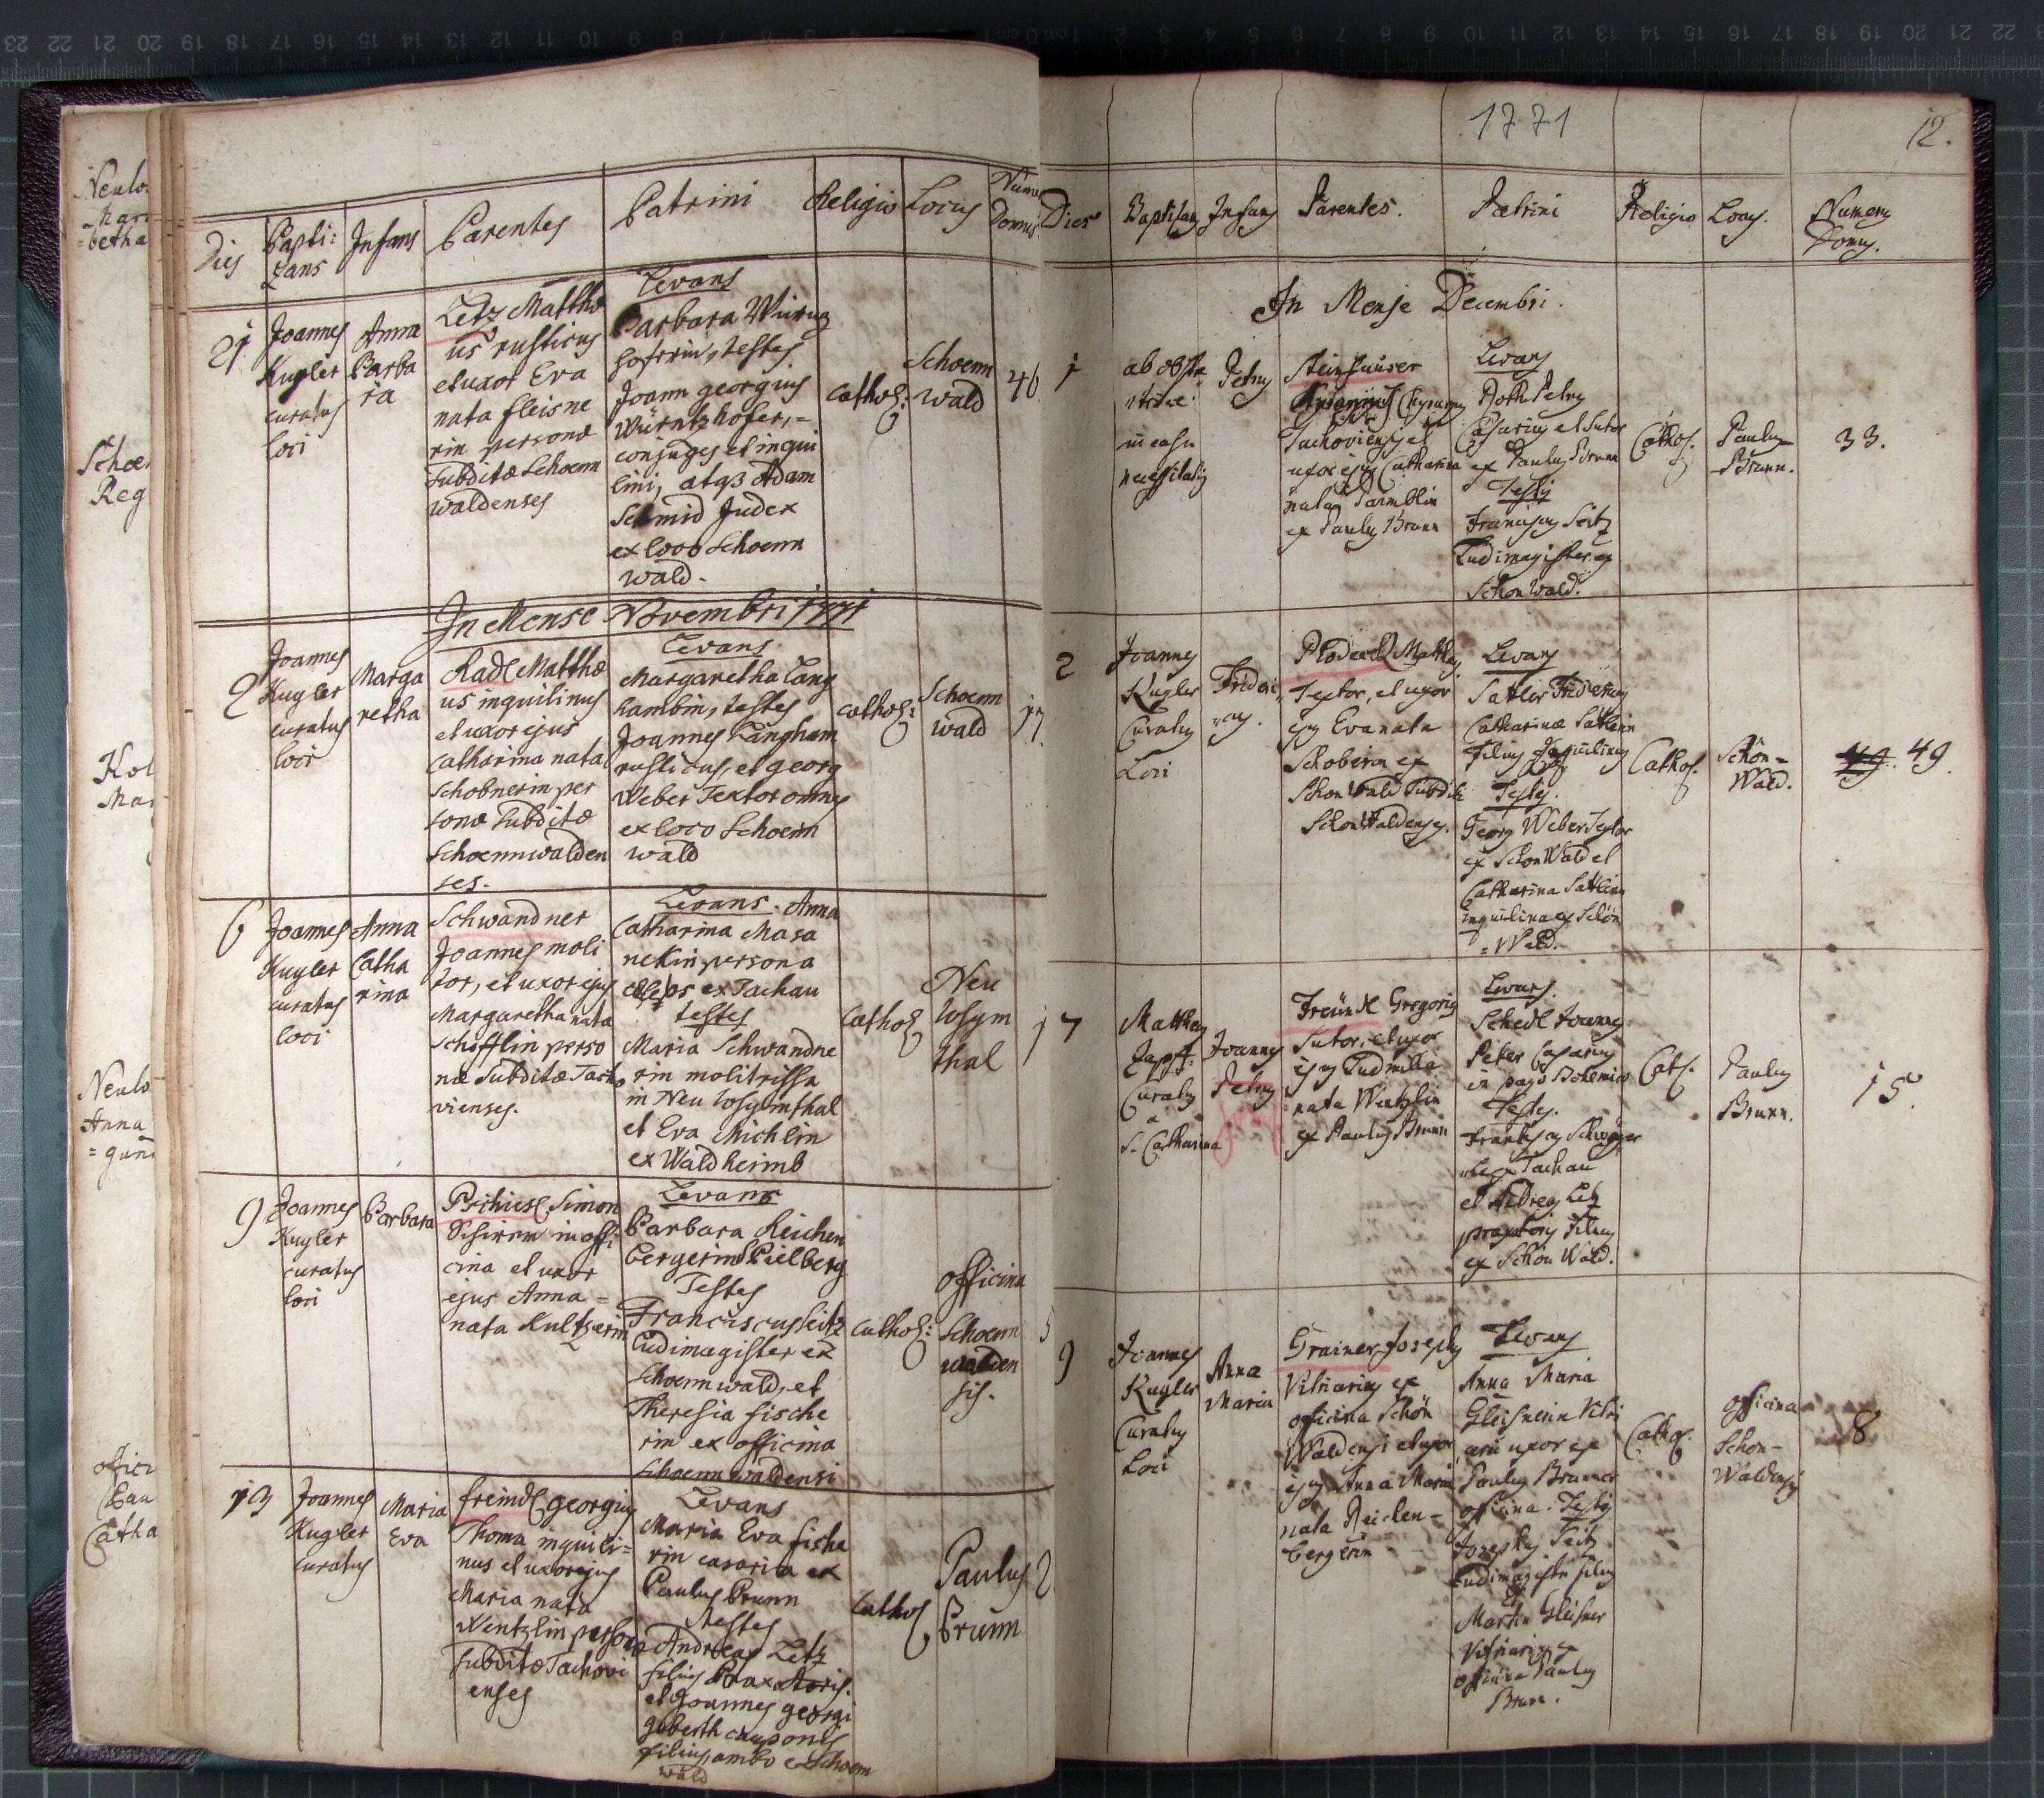 Neulo
Mari
betha
Schoen
Reg
Neulo
Anna
Catha
Dies
Bapti:
zans
Infans
Parentes
Patrini
Religio
Locus
Num
Domus
21
Joannes
Kugler
curatus
loci
Anna
Barba
ra
Letz Matthæ
us rusticus
et uxor Eva
nata fleisne
rin personæ
Subditæ Schoenn
waldenses
Levans
Barbara
hofrrin, testes
Joann georgius
Würntzhofer, -
conjuges et inqui
lini, atq3 Adam
Schmid Judex
ex loco Schoenn
wald.
cathol:
Schoenn
wald
46
In Mense Novembri 1771
2
Joannes
Kugler
curatus
loci
Marga
retha
Radl Matthæ
us inquilinus
et uxor ejus
catharina nata
Schobnerin per
sonæ Subditæ
Schoennwalden
ses.
Levans
Margaretha Lang
hambin, testes
Joannes Langham
rusticus, et georg
Weber Textor omnes
ex loco Schoenn
wald
cathol:
Schoenn
wald
17
6
Joannes
Kugler
curatus
loci
Anna
Catha
rina
Schwandner
Joannes moli
tor, et uxor ejus
Margaretha nata
Schifflin perso
næ Subditæ Tacho
vienses.
Levans. Anna
Catharina Masa
nekin persona
ex Tachau
testes
Maria Schwandne
rin molitrissa
in Neu losymthal
et Eva Michlin
ex Waldheimb
Cathol
Neu
losym
thal
1
9
Joannes
Kugler
curatus
loci
Barbara
Prihiesl Simon
in offi
cina et uxor
ejus Anna =
nata Kultzerin
Levans
Barbara Reichen
bergerin
Testes
Franciscus Seitz
Ludimagister ex
Schoennwald, et
Theresia fische
rin ex officina
Schoennwaldensi
cathol:
officina
Schoenn
walden
sis.
5
13
Joannes
Kugler
curatus
Maria
Eva
freindl georgius
Thoma inquili=
nus et uxor ejus
Maria nata
Wentzlin personæ
subditæ Tachovi
enses
Levans
Maria Eva fische
rin casaria ex
Paulus Brunn
testes
Andreas Letz
filius Praxatoris.
et Joannes georgi
geberth cauponis
filius, ambo e Schoenn
wald
Cathol
Paulus
Brunn
2
1771
12.
Dies
Baptisans
Infans
Parentes.
Patrini
Religio
Locus.
Numerus
Domus.
In Mense Decembri.
1
ab obste
trice
in casu
necessitatis
Petrus
Steinhauser
Tachoviensis et
uxor ejus Catharina
nata
ex Paulus Brunn
Levans
Roth Petrus
Casarius et Sutor
ex Paulus Brunn
Testis
Franciscus Seitz
Ludimagister ex
Schonwald.
Cathol.
Paulus
Brunn.
33.
2
Joannes
Kugler
Curatus
Loci
Frideri
cus.
Ploderl Mathias
Textor, et uxor
ejus Eva nata
Schoberin ex
Schonwald Subditi
Schonwaldenses.
Levans
Satler Fridericus
Catharinæ Satlerin
Filius Inquilinus
Testes.
Georg Weber Textor
ex Schonwald et
Catharina Satlerin
inquilina ex Schön
= Wald.
Cathol.
Schön=
Wald.
49
7
Matthæus
Zapf
Curatus
a
S. Catharina
Joannes
Petrus
Freündl Gregorius
Sutor, et uxor
ejus Ludmilla
nata Wentzlin
ex Paulus Brunn
Levans.
Schedl Joannes
Peter Casarius
in pago Bohemico
Testes.
Franciscus
ex Tachau
et Andreas Letz
praxatoris Filius
ex Schön Wald.
Cath.
Paulus
Brunn.
15.
9
Joannes
Kugler
Curatus
Loci
Anna
Maria
Grainer Josephus
Vitriarius ex
officina Schön
Waldensi et uxor
ejus Anna Maria
nata Reichen=
bergerin
Levans
Anna Maria
Gleisnerin Vitri
arii uxor ex
Paulus Brunner
officina. Testes
Josephus Seitz
Ludimagistri filius
et
Martin Gleisner
Vitriarius ex
officina Paulus
Brunn.
Cathol.
officina
Schon=
Waldensis
8